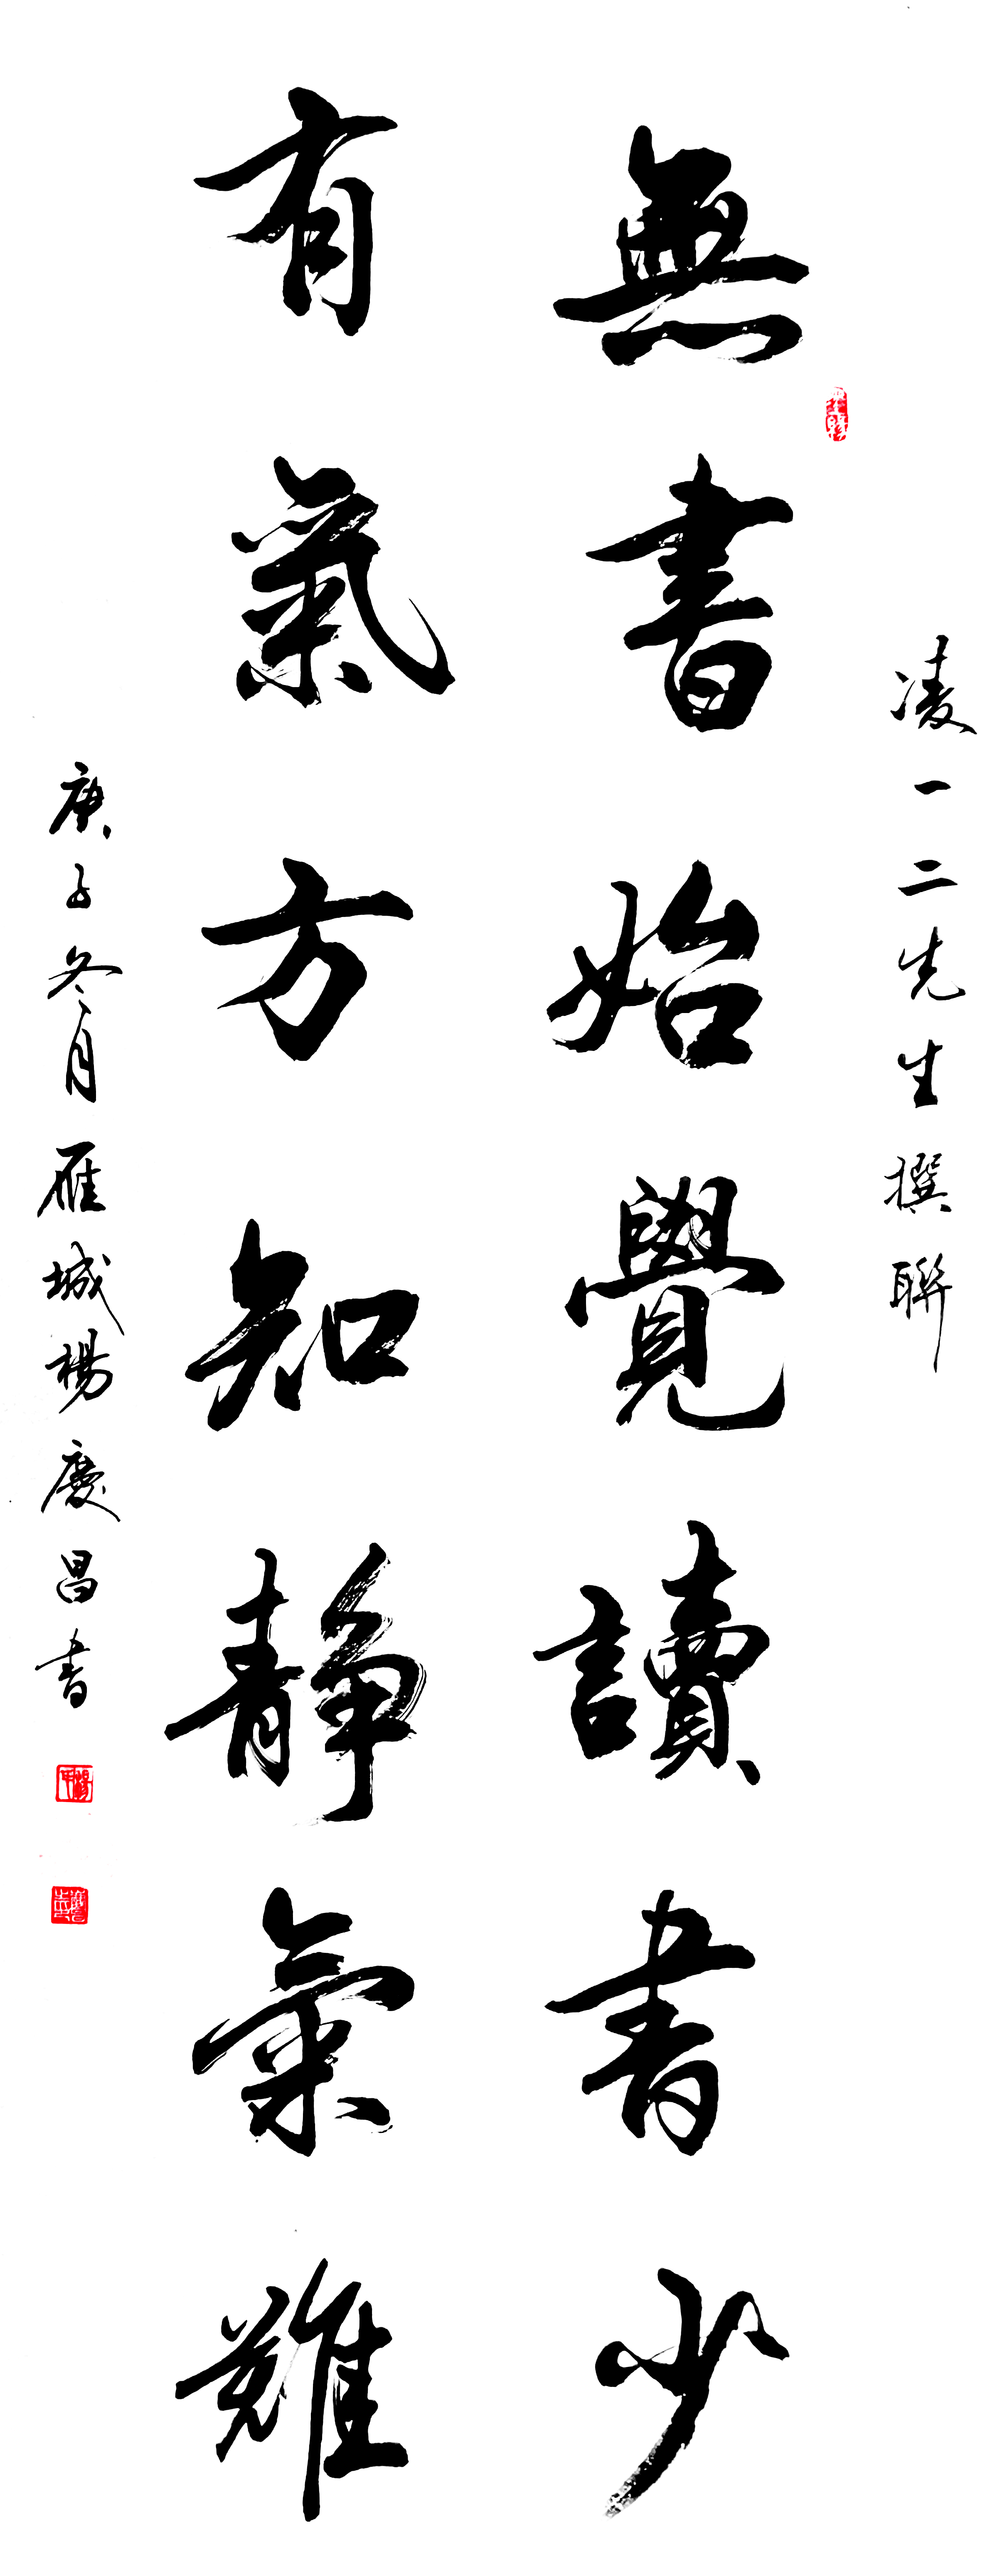 凌一二先生撰聯
無書始覺讀書少
有氣方知靜氣難
庚子冬月雁城楊慶昌書